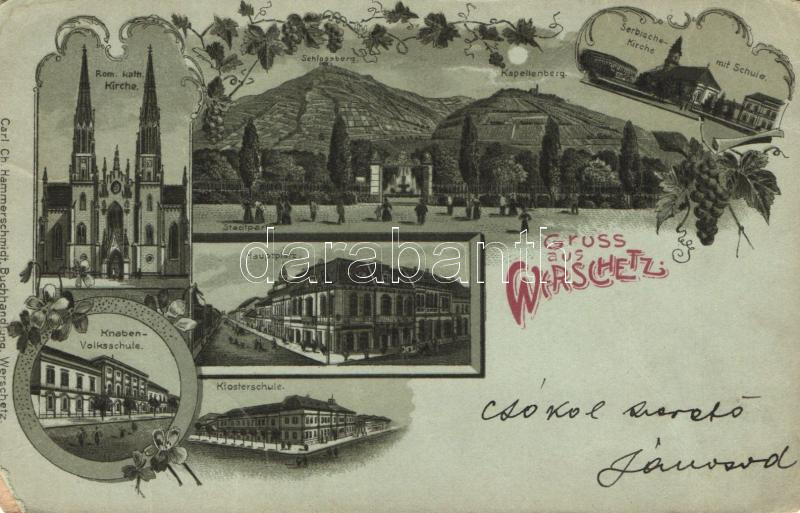 Rom. kath.
Kirche.
Schlossberg.
Kapellenberg.
Serbische-
Kirche
mit Schule.
Stadtpark
Hauptplatz
Gruss
aus
Werschetz.
Knaben-
Volksschule.
Klosterschule.
Csókol szerető
Jánosod
Carl Ch. Hammerschmidt, Buchhandlung, Werschetz.
darabanth.com